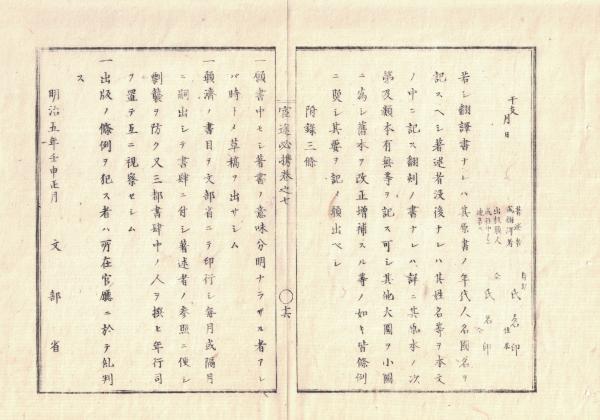 干支
月 日
著述者
或翻譯者
氏名印
出板願人
氏名印
若シ翻譯書ナレハ其原書ノ年代人名國名ヲ
記スヘシ著述者沒後ナレハ其姓名等ヲ本文
ノ中ニ記ス翻刻ノ書ナレハ詳ニ其原本ノ次
第及類本有無等ヲ記ス可シ其他大圖ヲ小圖
ニ為シ舊本ヲ改正增補スル等ノ如キ皆條例
ニ照シ其要ヲ記メ願出ベシ
附錄三條
官途必携卷之七
十六
一願書中モシ著書ノ意味分明ナラサル者アレ
バ時トメ草稿ヲ出サシム
一願濟ノ書目ヲ文部省ニテ印行シ每月或隔月
ニ刷出シテ書肆ニ付シ著述者ノ參照ニ便シ
剽襲ヲ防ク又三都書肆中ノ人ヲ撰ヒ年行司
ヲ置テ互ニ視察セシム
一出版ノ條例ヲ犯ス者ハ所在官廳ニ於テ糺判
ス
明治五年壬申正月 文部省